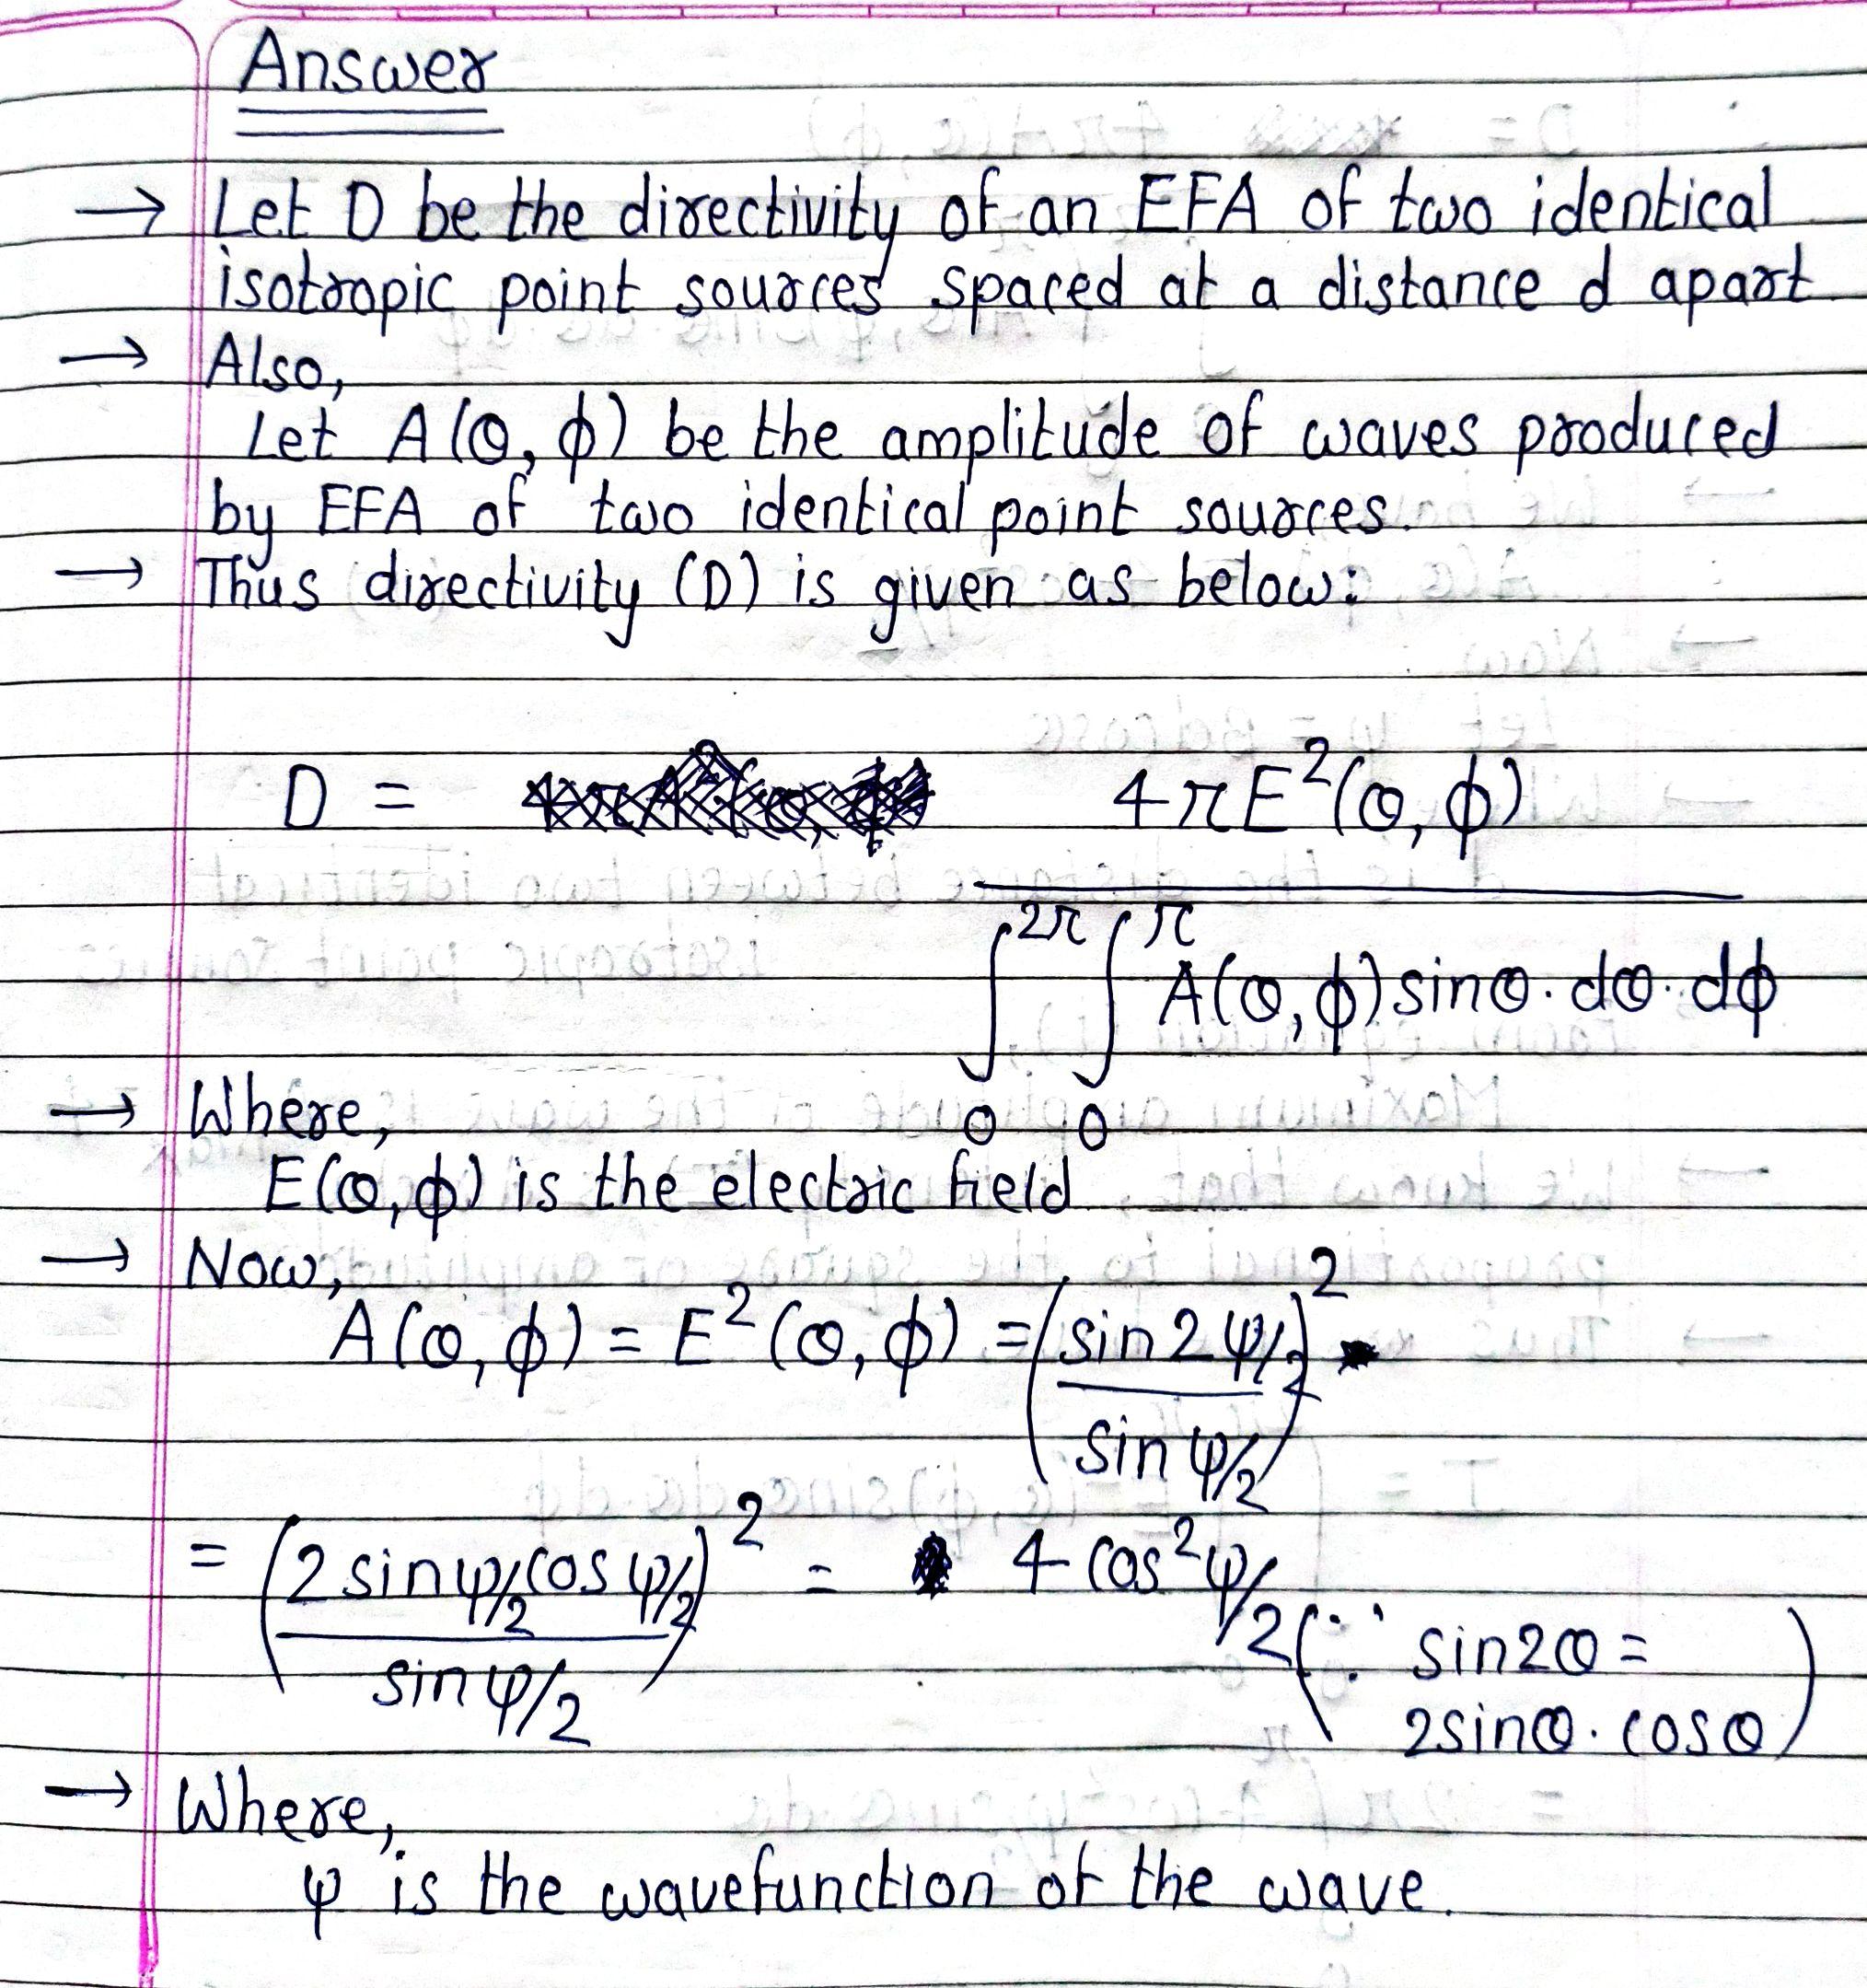 Answer
→ Let D be the directivity of an EFA of two identical
isotropic point sources spaced at a distance d apart
→ Also,
Let A(θ, φ) be the amplitude of waves produced
by EFA of two identical point sources.
→ Thus directivity (D) is given as below:
D = 4πE²(θ, φ)
∫₀^2π ∫₀^π A(θ, φ) sinθ · dθ · dφ
→ Where,
E(θ, φ) is the electric field
→ Now,
A(θ, φ) = E²(θ, φ) = (sin 2ψ/2 / sin ψ/2)²
= (2 sin ψ/2 cos ψ/2 / sin ψ/2)² = 4 cos² ψ/2
(∵ sin2θ =
2sinθ · cosθ)
→ Where,
ψ is the wavefunction of the wave.